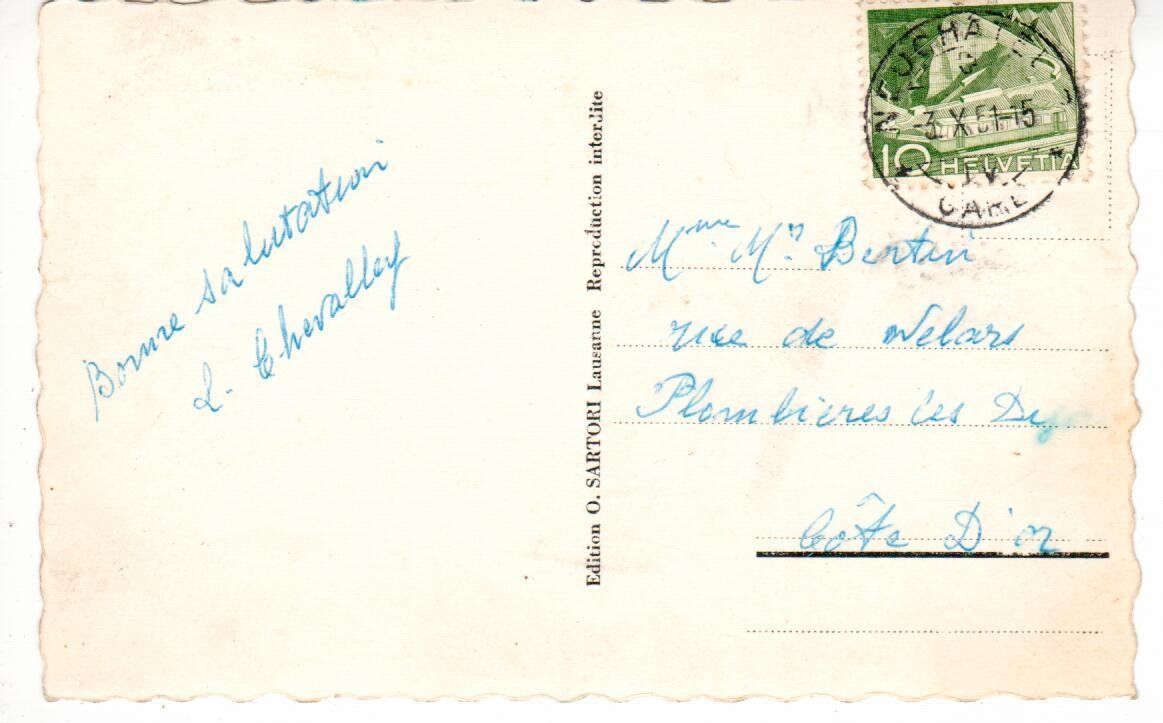 Bonne salutation
L. Chevalley
Edition O. SARTORI Lausanne Reproduction interdite
NEUCHATEL
-3. X. 51-15
GARE
10 HELVETIA
Mme Mr Bertin
rue de Velars
Plombieres les Dijon
Côte D'or